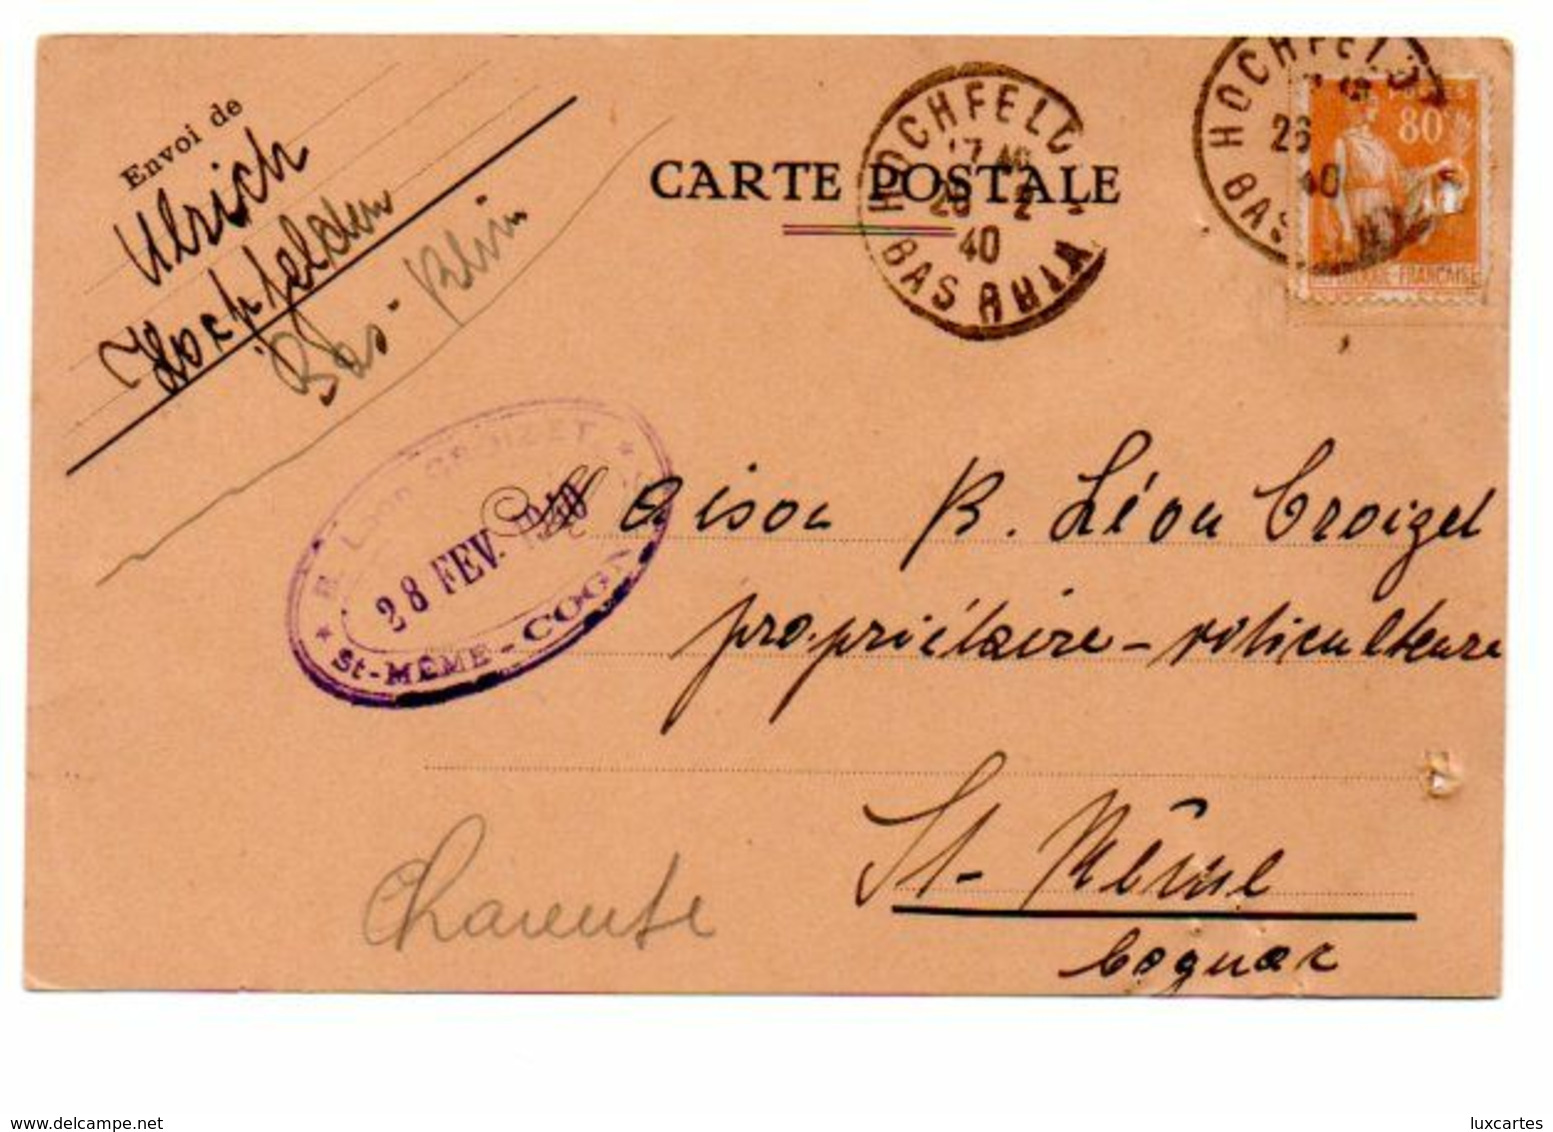 Envoi de
Ulrich
Hochfelden
Bas-Rhin
CARTE POSTALE
HOCHFELD
17 40
26 2
40
BAS RHIN
HOCHFELD
26
40
BAS
POSTES
80
FRANÇAISE
R. Léon CROIZET
28 FEV. 1940
St-MÊME-COGN
Maison R. Léon Croizet
propriétaire-viticulteure
St-Même
Cognac
Charente
www.delcampe.net
luxcartes